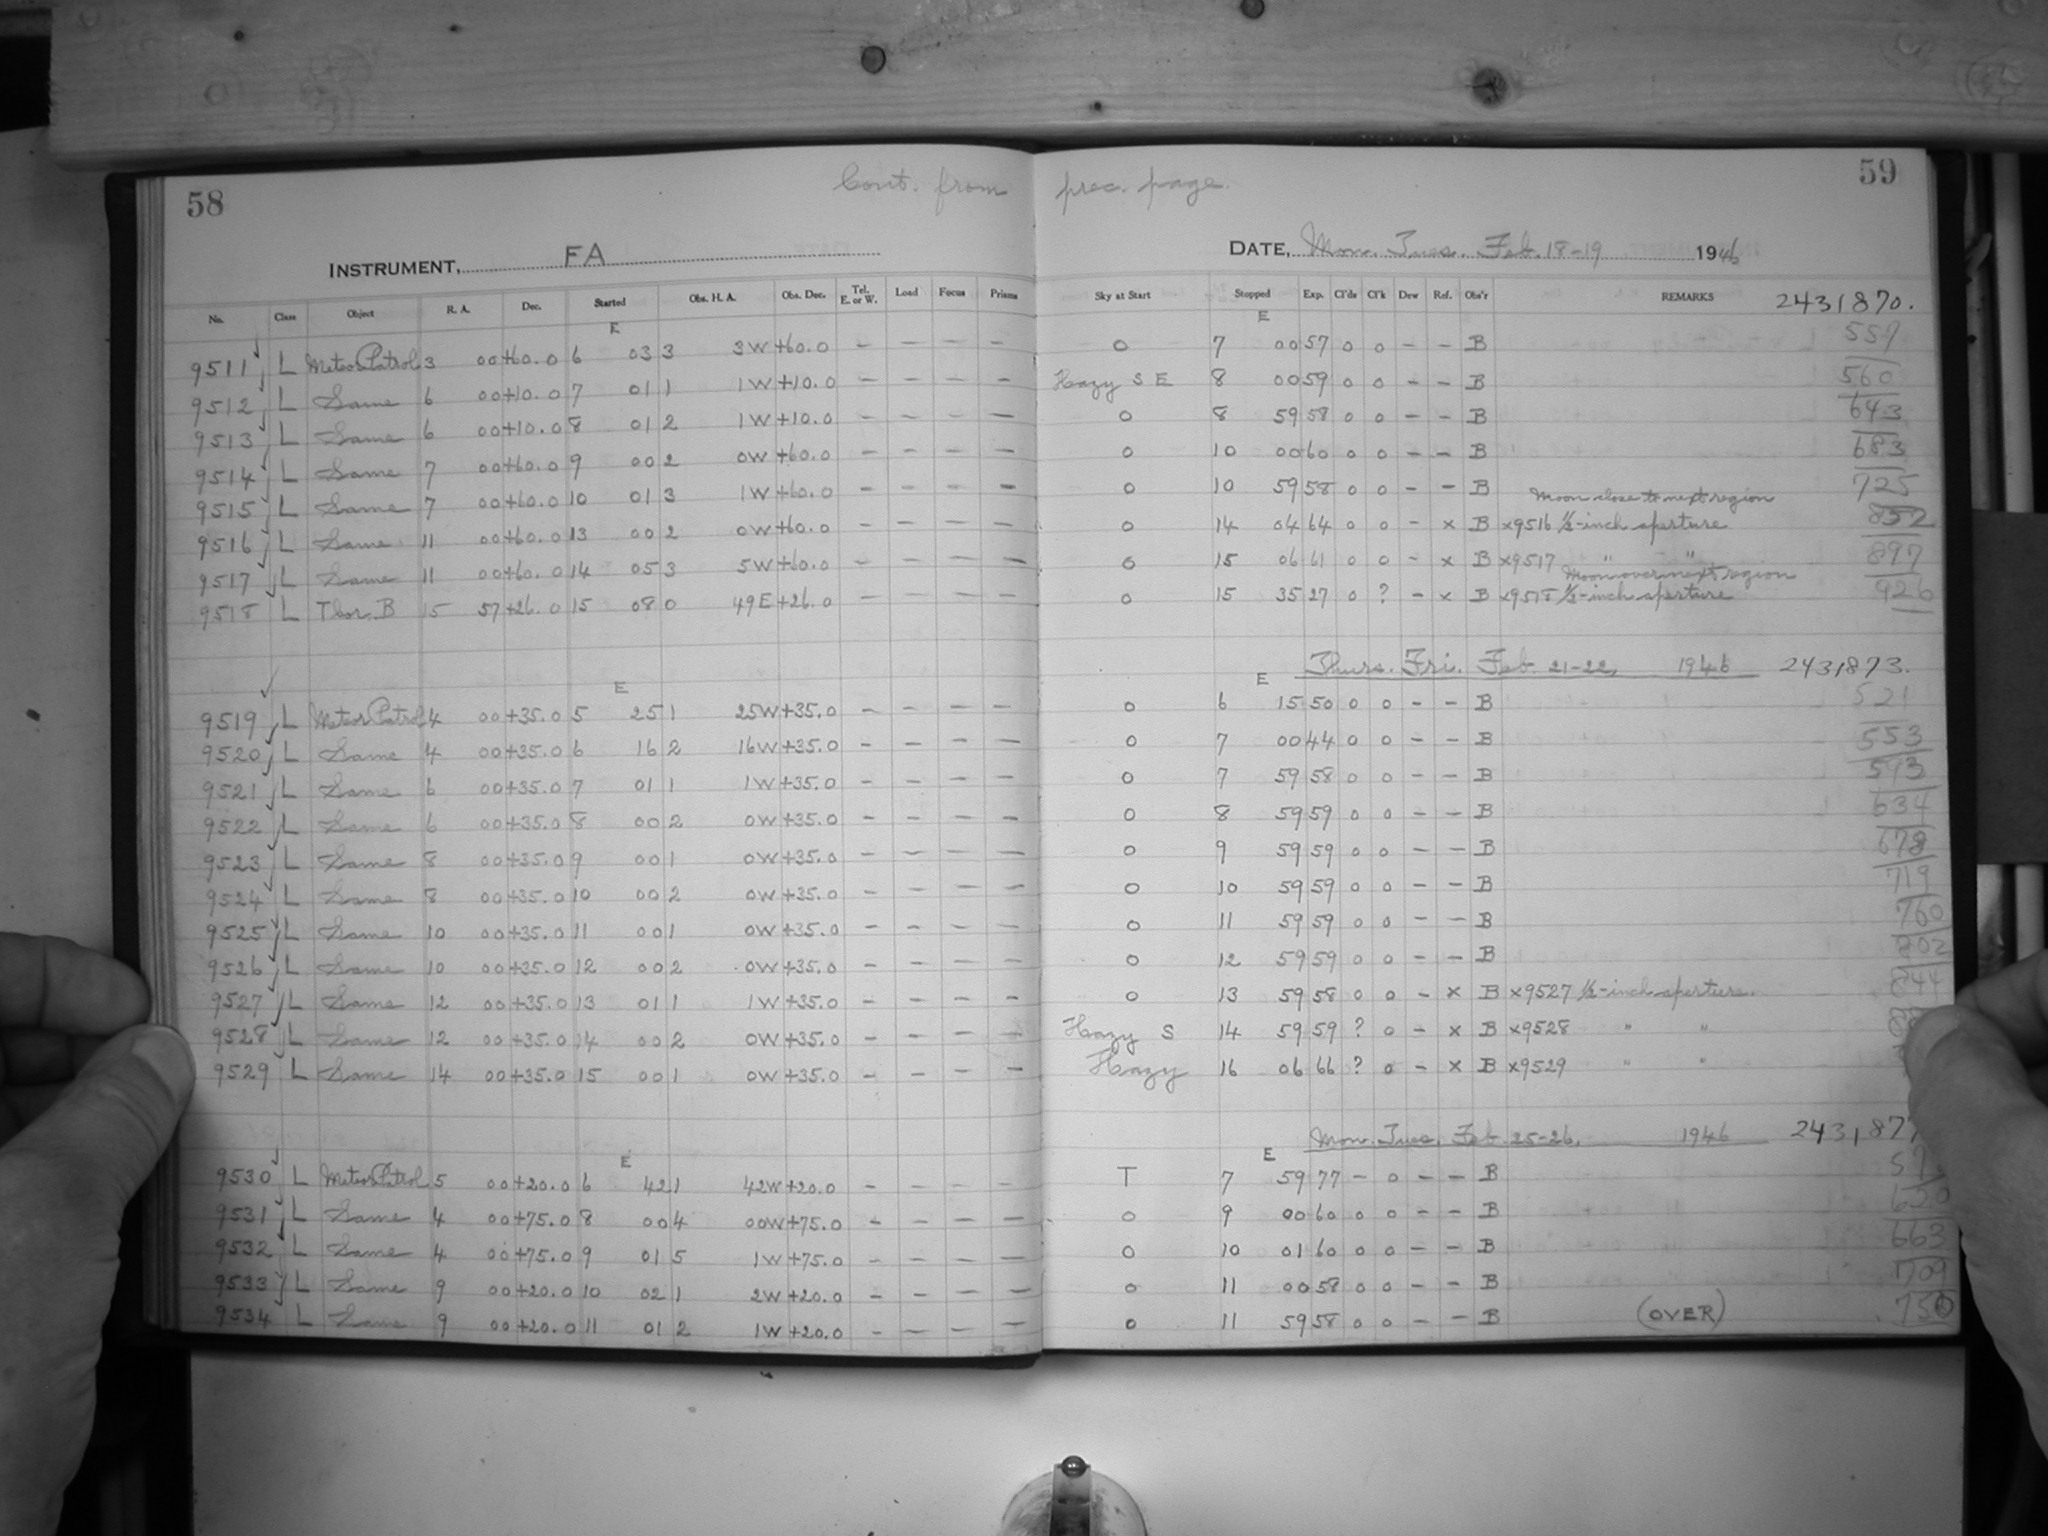 58
Cont. from prec. page.
59
INSTRUMENT, FA
DATE, Mon. Tues. Feb. 18-19 1946
No. Class Object R. A. Dec. Started Obs. H. A. Obs. Dec. Tel. E. or W. Load Focus Prisms Sky at Start Stopped Exp. Cl'ds Cl'k Dew Ref. Obs'r REMARKS 2431870.
E E
9511 L Meteor Patrol 3 00 +60.0 6 03 3 3W +60.0 - - - - 0 7 00 57 0 0 - - B 557
9512 L Same 6 00 +10.0 7 01 1 1W +10.0 - - - - Hazy S E 8 00 59 0 0 - - B 560
9513 L Same 6 00 +10.0 8 01 2 1W +10.0 - - - - 0 8 59 58 0 0 - - B 643
9514 L Same 7 00 +60.0 9 00 2 0W +60.0 - - - - 0 10 00 60 0 0 - - B 683
9515 L Same 7 00 +60.0 10 01 3 1W +60.0 - - - - 0 10 59 58 0 0 - - B 725
Moon close to next region
9516 L Same 11 00 +60.0 13 00 2 0W +60.0 - - - - 0 14 04 64 0 0 - x B x9516 ½-inch aperture 852
9517 L Same 11 00 +60.0 14 05 3 5W +60.0 - - - - 0 15 06 61 0 0 - x B x9517 " " 897
Moon over next region
9518 L T Cor. B 15 57 +26.0 15 08 0 49E +26.0 - - - - 0 15 35 27 0 ? - x B x9518 ½-inch aperture 926
Thurs. Fri. Feb. 21-22, 1946 2431873.
E E
9519 L Meteor Patrol 4 00 +35.0 5 25 1 25W +35.0 - - - - 0 6 15 50 0 0 - - B 521
9520 L Same 4 00 +35.0 6 16 2 16W +35.0 - - - - 0 7 00 44 0 0 - - B 553
9521 L Same 6 00 +35.0 7 01 1 1W +35.0 - - - - 0 7 59 58 0 0 - - B 593
9522 L Same 6 00 +35.0 8 00 2 0W +35.0 - - - - 0 8 59 59 0 0 - - B 634
9523 L Same 8 00 +35.0 9 00 1 0W +35.0 - - - - 0 9 59 59 0 0 - - B 678
9524 L Same 8 00 +35.0 10 00 2 0W +35.0 - - - - 0 10 59 59 0 0 - - B 719
9525 L Same 10 00 +35.0 11 00 1 0W +35.0 - - - - 0 11 59 59 0 0 - - B 760
9526 L Same 10 00 +35.0 12 00 2 0W +35.0 - - - - 0 12 59 59 0 0 - - B 802
9527 L Same 12 00 +35.0 13 01 1 1W +35.0 - - - - 0 13 59 58 0 0 - x B x9527 ½-inch aperture. 844
9528 L Same 12 00 +35.0 14 00 2 0W +35.0 - - - - Hazy S 14 59 59 ? 0 - x B x9528 " "
9529 L Same 14 00 +35.0 15 00 1 0W +35.0 - - - - Hazy 16 06 66 ? 0 - x B x9529 " "
Mon. Tues. Feb. 25-26, 1946 2431877
E E
9530 L Meteor Patrol 5 00 +20.0 6 42 1 42W +20.0 - - - - T 7 59 77 - 0 - - B
9531 L Same 4 00 +75.0 8 00 4 00W +75.0 - - - - 0 9 00 60 0 0 - - B 620
9532 L Same 4 00 +75.0 9 01 5 1W +75.0 - - - - 0 10 01 60 0 0 - - B 663
9533 L Same 9 00 +20.0 10 02 1 2W +20.0 - - - - 0 11 00 58 0 0 - - B 709
9534 L Same 9 00 +20.0 11 01 2 1W +20.0 - - - - 0 11 59 58 0 0 - - B (OVER) 750